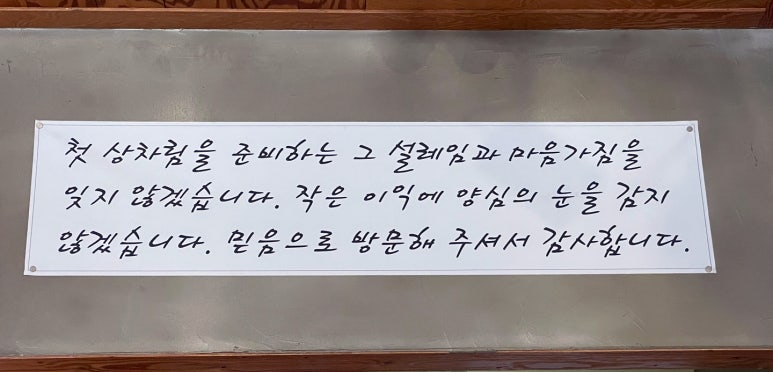 첫 상차림을 준비하는 그 설레임과 마음가짐을
잊지 않겠습니다. 작은 이익에 양심의 눈을 감지
않겠습니다. 믿음으로 방문해 주셔서 감사합니다.